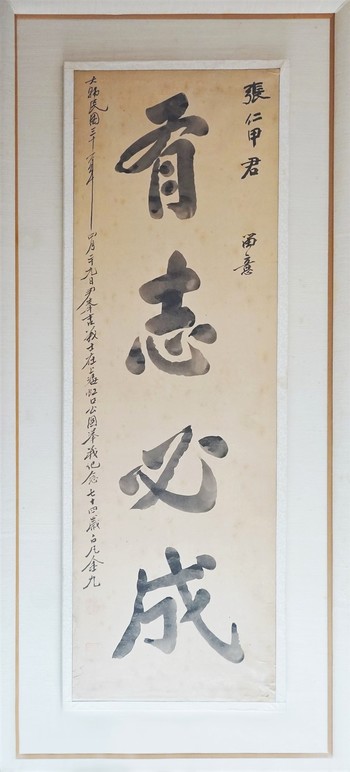 張仁甲君 留意
有志必成
大韓民國三十一年四月二十九日尹奉吉義士在上海虹口公園擧義記念 七十四歲白凡金九